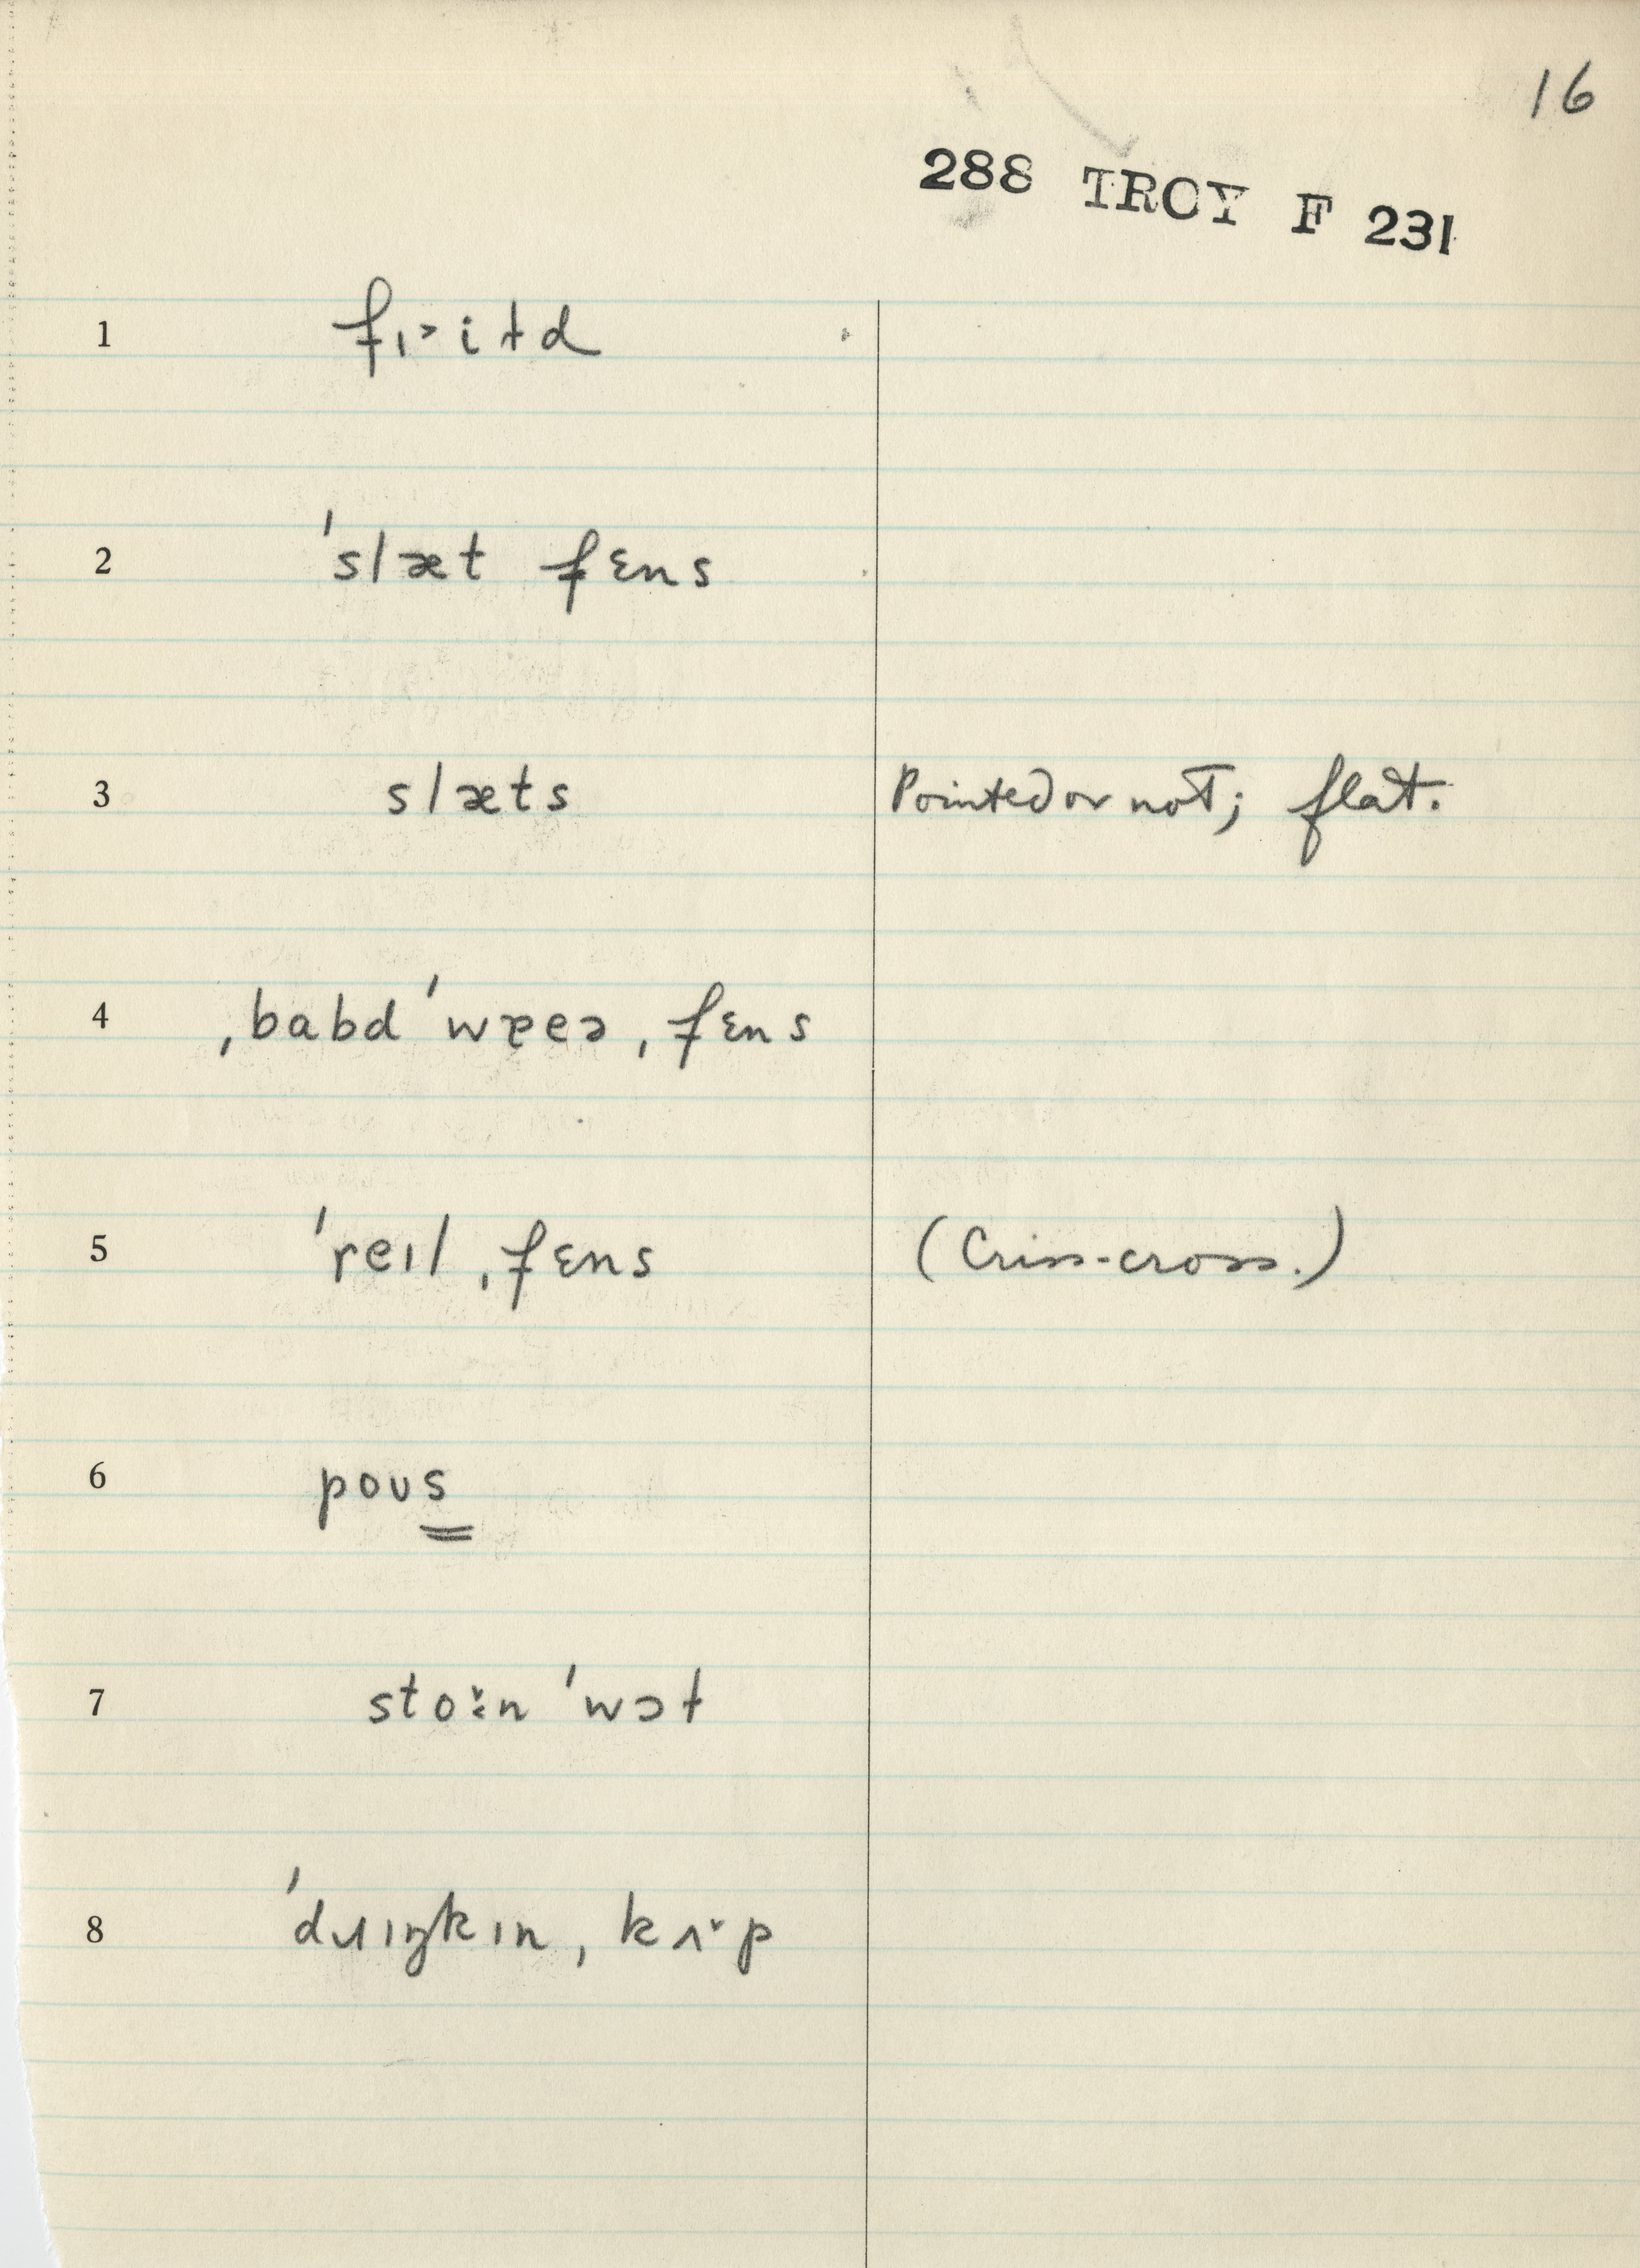 16
288 TROY F 231
1 fɪ˃iɫd
2 ˈslæt fɛns
3 slæts Pointed or not; flat.
4 ˌbabd ˈwɐeə ˌfɛns
5 ˈreɪl ˌfɛns (Criss-cross.)
6 poʊs
7 sto˅:n ˈwɔɫ
8 ˈdɹɪŋkɪn ˌkʌ˅p